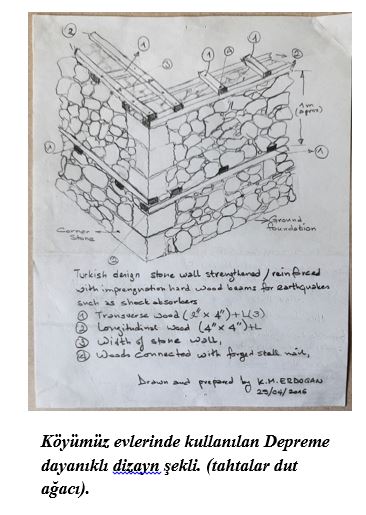 ②
①
③
①
④
①
②
1m
(aprox)
①
①
Corner
Stone
Ground
foundation
②
Turkish design stone wall strengthened / reinforced
with imprengnation hard wood beams for earthquakes
such as shock absorbers
① Transverse wood (2" x 4") + L(3)
② Longitudinal wood (4" x 4") + L
③ Width of stone wall,
④ Woods connected with forged stell nail,
Drawn and prepared by K.M. ERDOGAN
29/04/2016
Köyümüz evlerinde kullanılan Depreme
dayanıklı dizayn şekli. (tahtalar dut
ağacı).